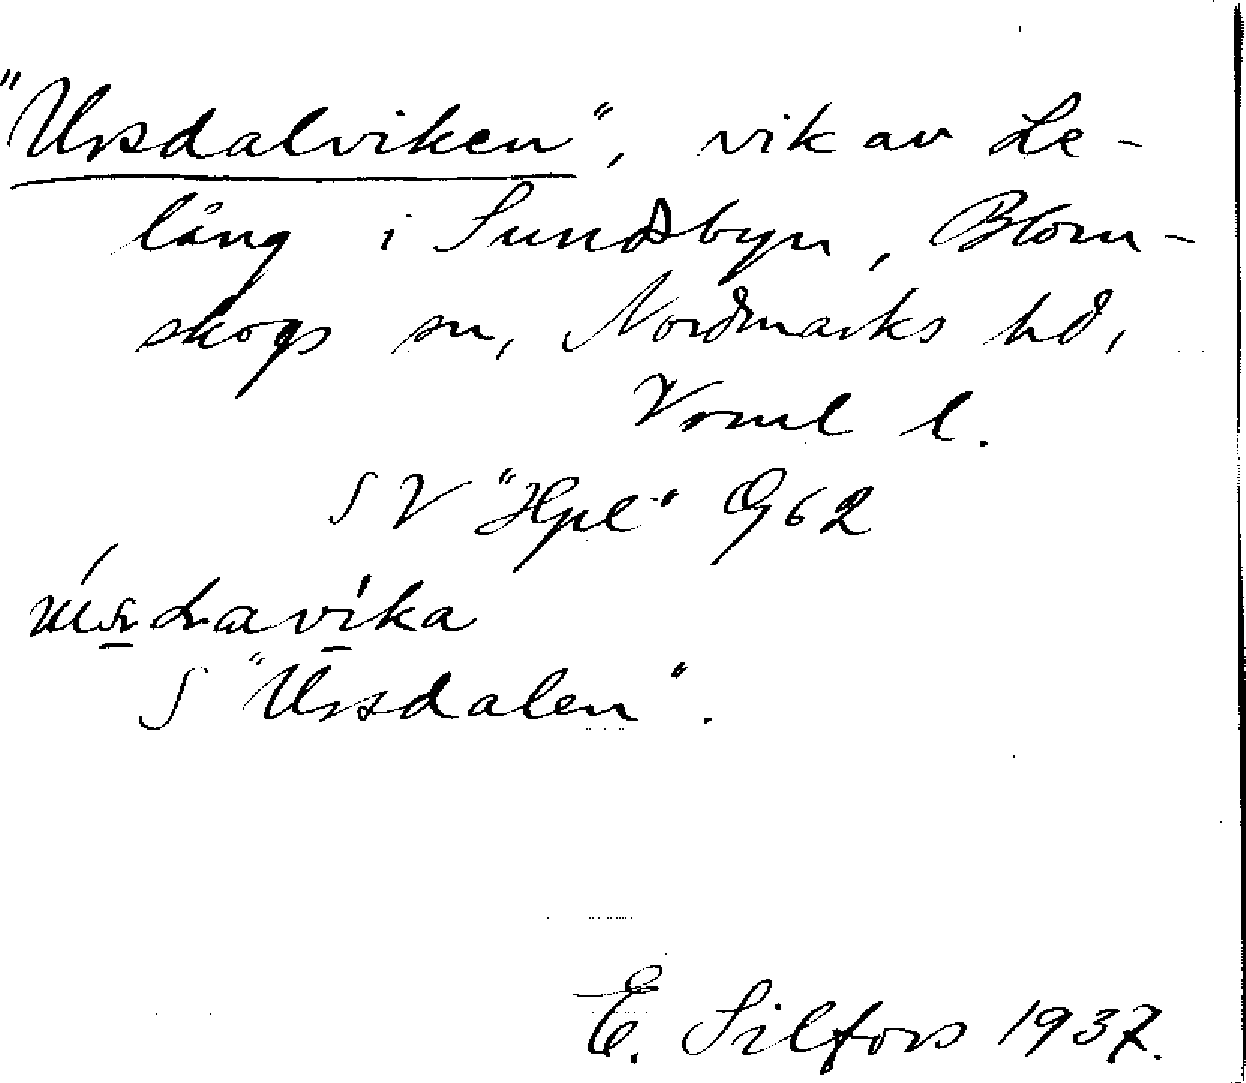 "Ursdalviken", vik av Le-
lång i Sundsbyn, Blom-
skogs sn, Nordmarks hd,
Värml l.
SV "Hpl" Q62
S "Ursdalen".
E. Silfors 1937.